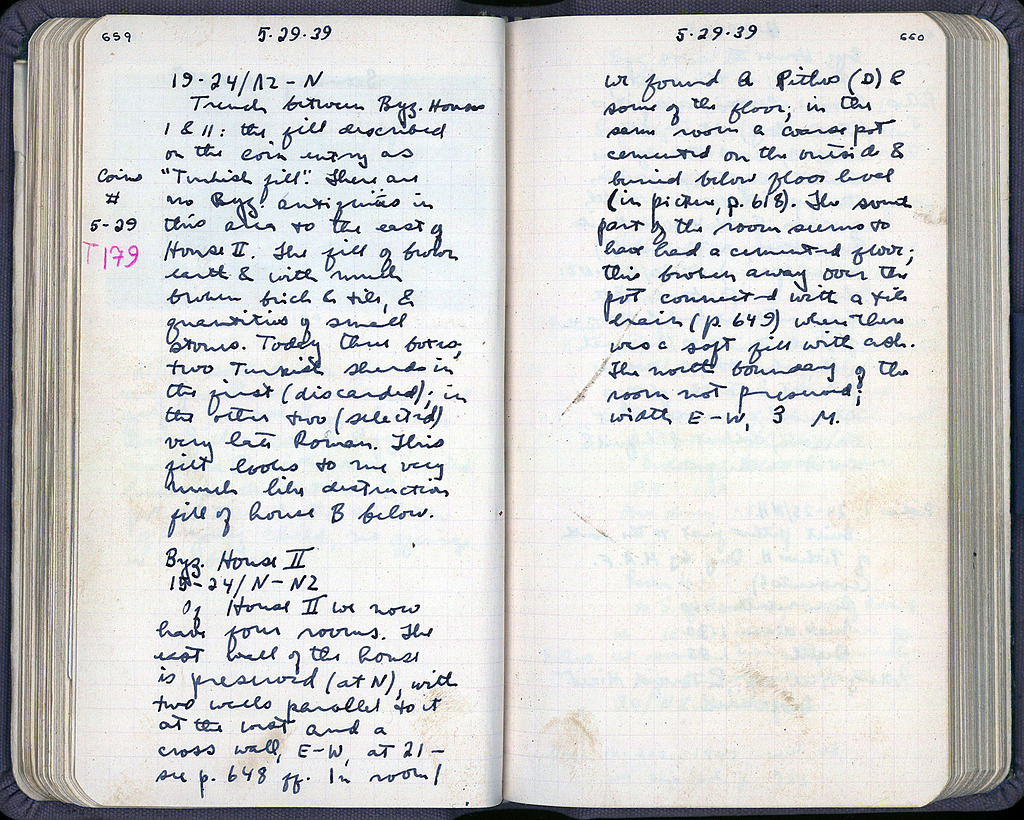 659
5-29-39
19-24/Λ2-N
Trench between Byz. Houses
I & II: the fill described
on the coin entry as
Coins "Turkish fill". There are
# no Byz. antiquities in
5-29 this area to the east of
T179 House II. The fill of brown
earth & with much
broken brick & tile, &
quantities of small
stones. Today three boxes,
two Turkish sherds in
the first (discarded); in
the other two (selected)
very late Roman. This
fill looks to me very
much like destruction
fill of house B below.
Byz. House II
19-24/N-N2
Of House II we now
have four rooms. The
east wall of the house
is preserved (at N), with
two walls parallel to it
at the west and a
cross wall, E-W, at 21-
see p. 648 ff. In room 1
5-29-39
660
we found a Pithos (D) &
some of the floor; in the
same room a coarse pot
cemented on the outside &
buried below floor level
(in picture, p. 618). The south
part of the room seems to
have had a cemented floor;
this broken away over the
pot connected with a tile
drain (p. 649) where there
was a soft fill with ash.
The north boundary of the
room not preserved;
width E-W, 3 M.